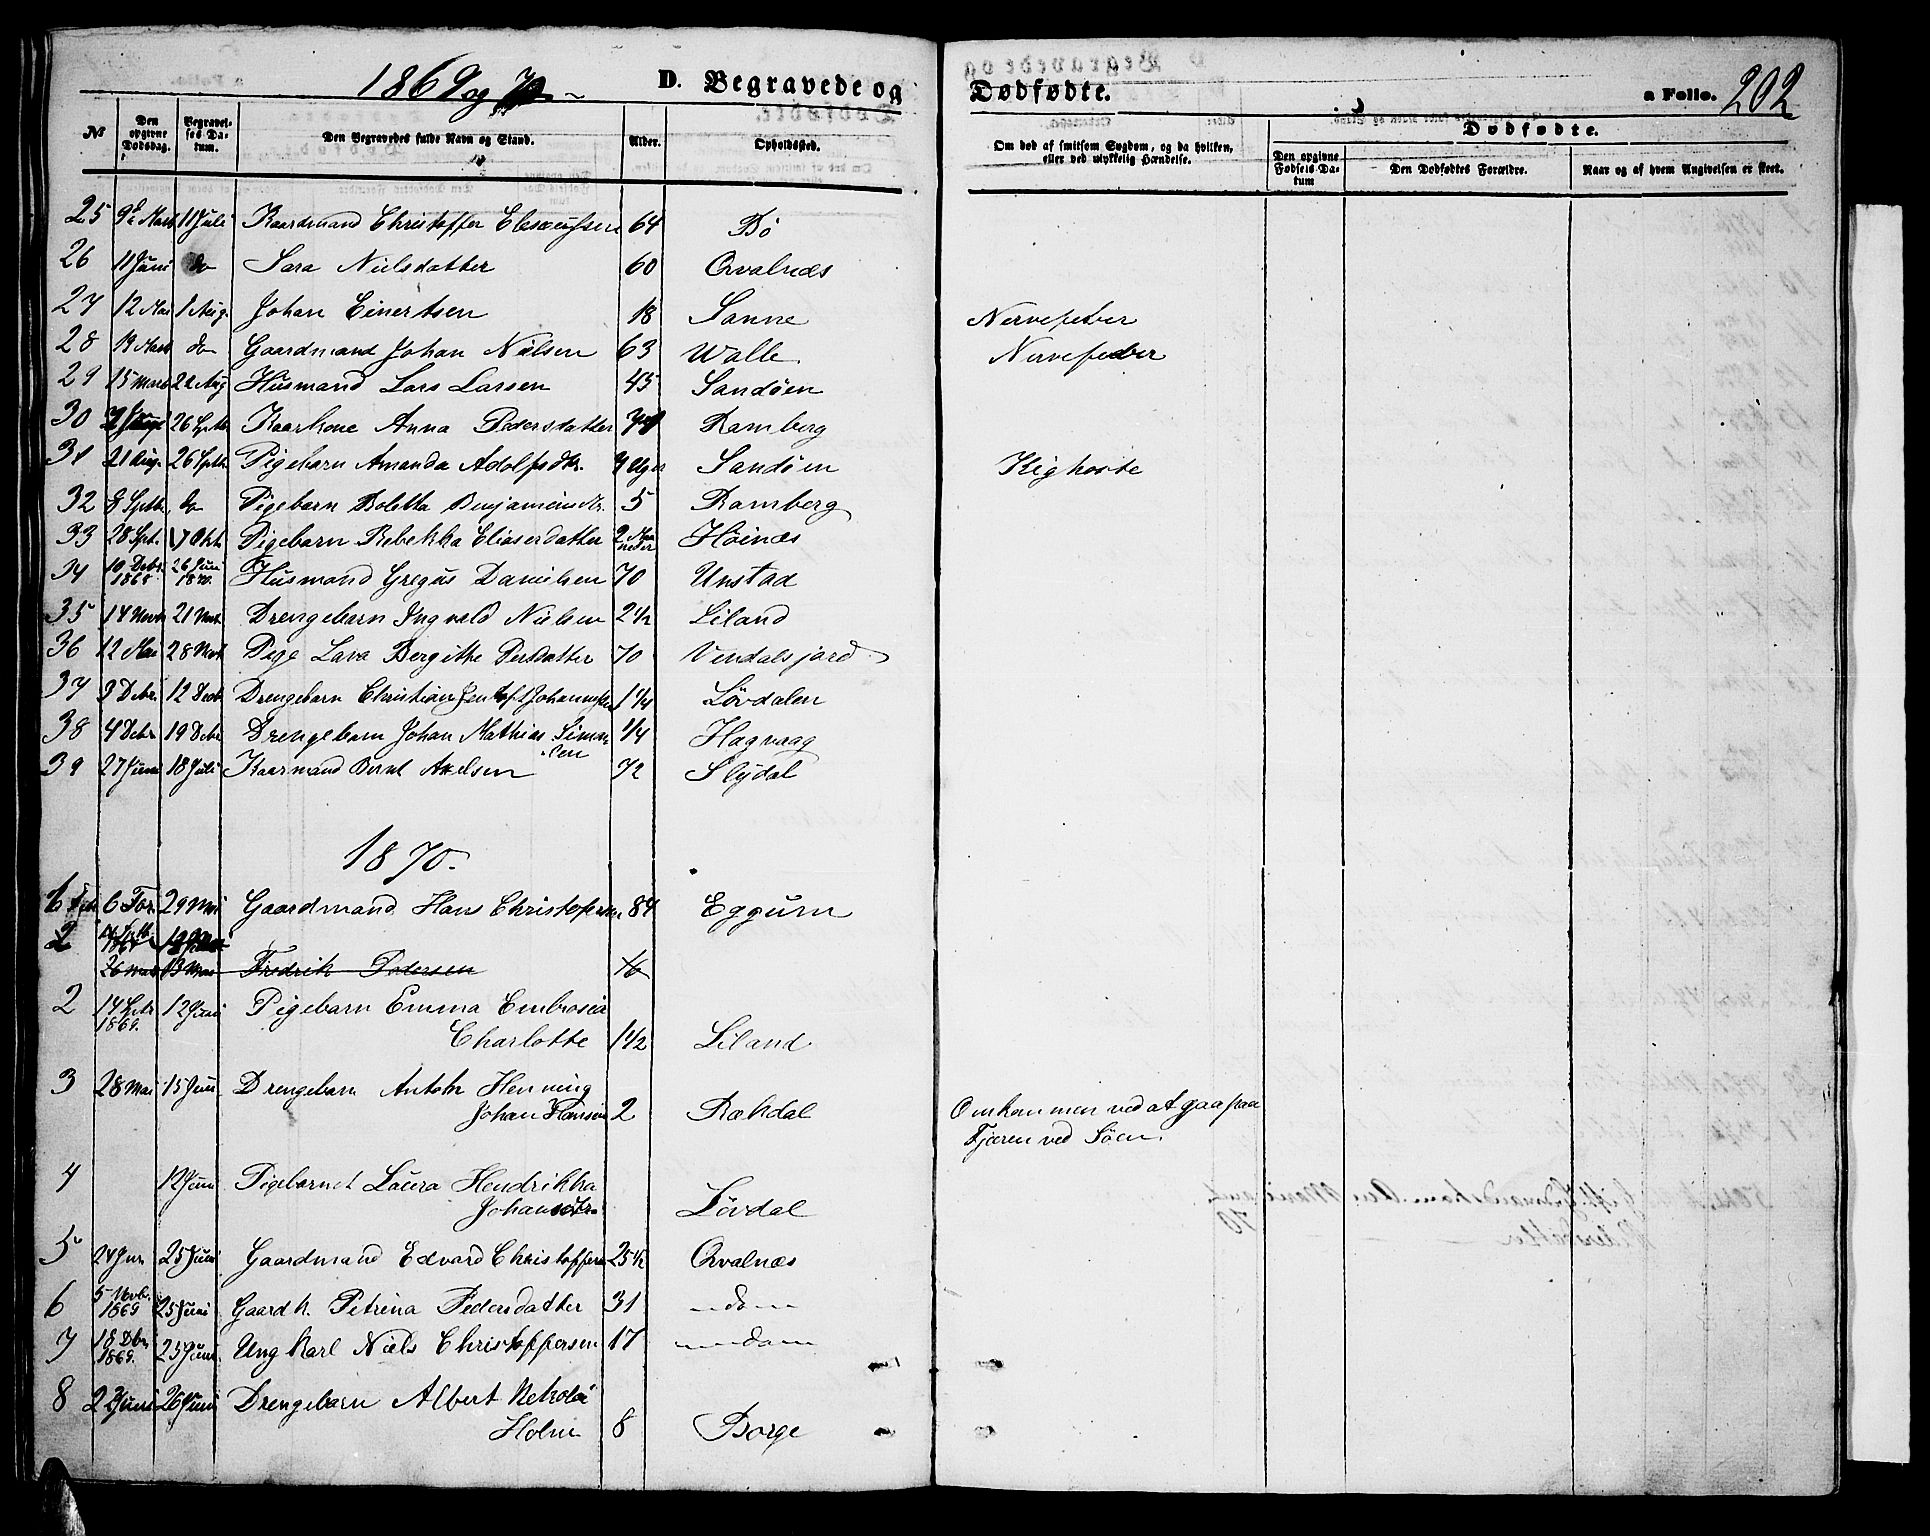 1869 og 70
D. Begravede og Dødfødte.
a Folio. 202
№ Den opgivne Dødsdag. Begravelses Datum. Den Begravedes fulde Navn og Stand. Alder. Opholdssted. Om død af smitsom Sygdom, og da hvilken, eller ved ulykkelig Hændelse. Dødfødte.
Den opgivne Fødsels Datum Den Dødfødtes Forældre. Naar og af hvem Angivelsen er skeet.
25 11 Juli Kaardmand Christoffer Eliseussen 64 Bø
26 11 Juni do Sara Nielsdatter 60 Qvalnæs
27 12 Mai 1 Aug. Johan Einertsen 18 Sanne Nervefeber
28 19 Mars do Gaardmand Johan Nielsen 63 Walle Nervefeber
29 15 Mars 22 Aug Husmand Lars Larsen 45 Sandøen
30 26 Septb Kaarkone Anna Pedersdatter Ramberg
31 21 Aug. 26 Septb Pigebarn Amanda Adolfsdtr. 7 Uger Sandøen Kighoste
32 8 Septb. do Pigebarn Boletta Benjaminsdtr. 5 Ramberg
33 28 Spt. 17 Okt. Pigebarn Rebekka Eliaserdatter 2 Maaneder Høinæs
34 10 Debr. 1868 26 Juni 1870. Husmand Gregus Danielsen 70 Unstad
35 14 Novb 21 Nvb. Drengebarn Ingvald Nielsen 2 1/2 Liland
36 12 Mai 28 Novb Pige Lava Bergithe Persdatter 70 Vendalsjord
37 3 Debr. 12 Decb Drengebarn Christian Jentoft Johannesen 1 1/4 Løvdalen
38 4 Debr 19 Debr Drengebarn Johan Mathias Simonsen 1/4 Hagvaag
39 27 Juni 18 Juli Kaarmand Bernt Axelsen 72 Slydal
1870.
1 6 Febr. 29 Mai Gaardmand Hans Christofersen 84 Eggum
2
26 Mai 13 Mai Fredrik Pedersen
2 14 1869. 12 Juni Pigebarn Emma Embrosia
Charlotte 1 1/2 Liland
3 28 Mai 15 Juni Drengebarn Anton Henning
Johan Hansen 2 Rækdal Omkommen ved at gaa paa
Fjæren ved Søen.
4 12 Juni Pigebarnet Laura Hendrikka
Johansdtr. Løvdal
5 24 Jnr 25 Juni Gaardmand Edvard Christoffers 25 1/2 Qvalnæs
6 5 Novb. 1869 25 Juni Gaardk. Petrina Pedersdatter 31 —dem—
7 18 Dbr 1869. 25 Juni Ung Karl Niels Christoffersen 17 —dem
8 2 Juni 26 Juni Drengebarn Albert Nekolai
Holm 8 Borge